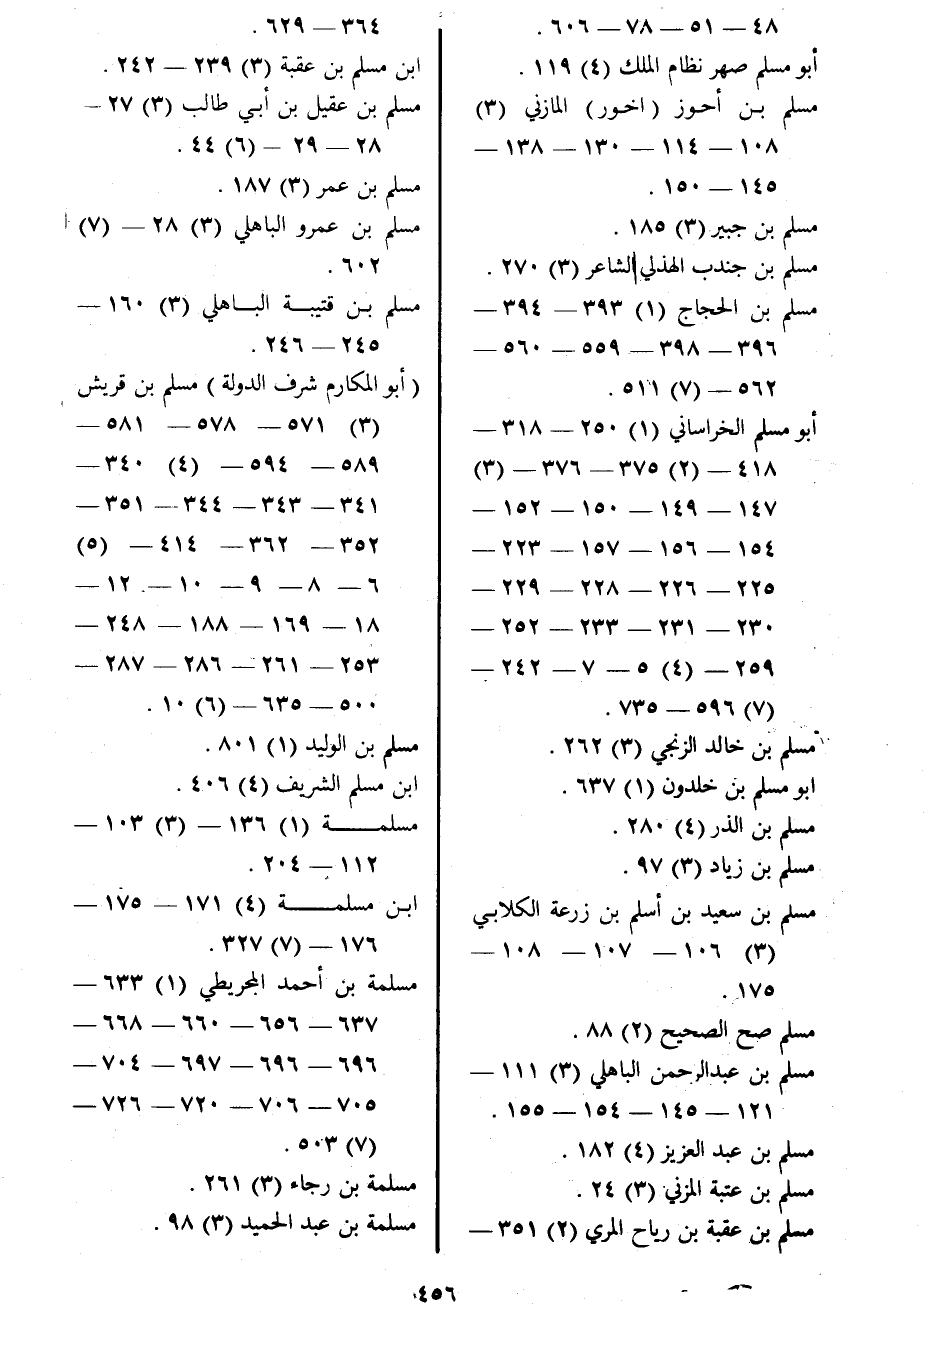 ٤٨ — ٥١ — ٧٨ — ٦٠٦ .
أبو مسلم صهر نظام الملك (٤) ١١٩ .
مسلم بن أحوز (اخور) المازني (٣)
١٠٨ — ١١٤ — ١٣٠ — ١٣٨ —
١٤٥ — ١٥٠ .
مسلم بن جبير (٣) ١٨٥ .
مسلم بن جندب الهذلي الشاعر (٣) ٢٧٠ .
مسلم بن الحجاج (١) ٣٩٣ — ٣٩٤ —
٣٩٦ — ٣٩٨ — ٥٥٩ — ٥٦٠ —
٥٦٢ — (٧) ٥١١ .
أبو مسلم الخراساني (١) ٢٥٠ — ٣١٨ —
٤١٨ — (٢) ٣٧٥ — ٣٧٦ — (٣)
١٤٧ — ١٤٩ — ١٥٠ — ١٥٢ —
١٥٤ — ١٥٦ — ١٥٧ — ٢٢٣ —
٢٢٥ — ٢٢٦ — ٢٢٨ — ٢٢٩ —
٢٣٠ — ٢٣١ — ٢٣٣ — ٢٥٢ —
٢٥٩ — (٤) ٥ — ٧ — ٢٤٢ —
(٧) ٥٩٦ — ٧٣٥ .
مسلم بن خالد الزنجي (٣) ٢٦٢ .
ابو مسلم بن خلدون (١) ٦٣٧ .
مسلم بن الذر (٤) ٢٨٠ .
مسلم بن زياد (٣) ٩٧ .
مسلم بن سعيد بن أسلم بن زرعة الكلابي
(٣) ١٠٦ — ١٠٧ — ١٠٨ —
١٧٥ .
مسلم صح الصحيح (٢) ٨٨ .
مسلم بن عبدالرحمن الباهلي (٣) ١١١ —
١٢١ — ١٤٥ — ١٥٤ — ١٥٥ .
مسلم بن عبد العزيز (٤) ١٨٢ .
مسلم بن عتبة المزني (٣) ٢٤ .
مسلم بن عقبة بن رياح المري (٢) ٣٥١ —
٣٦٤ — ٦٢٩ .
ابن مسلم بن عقبة (٣) ٢٣٩ — ٢٤٢ .
مسلم بن عقيل بن أبي طالب (٣) ٢٧ —
٢٨ — ٢٩ — (٦) ٤٤ .
مسلم بن عمر (٣) ١٨٧ .
مسلم بن عمرو الباهلي (٣) ٢٨ — (٧)
٦٠٢ .
مسلم بن قتيبة الباهلي (٣) ١٦٠ —
٢٤٥ — ٢٤٦ .
(أبو المكارم شرف الدولة) مسلم بن قريش
(٣) ٥٧١ — ٥٧٨ — ٥٨١ —
٥٨٩ — ٥٩٤ — (٤) ٣٤٠ —
٣٤١ — ٣٤٣ — ٣٤٤ — ٣٥١ —
٣٥٢ — ٣٦٢ — ٤١٤ — (٥)
٦ — ٨ — ٩ — ١٠ — ١٢ —
١٨ — ١٦٩ — ١٨٨ — ٢٤٨ —
٢٥٣ — ٢٦١ — ٢٨٦ — ٢٨٧ —
٥٠٠ — ٦٣٥ — (٦) ١٠ .
مسلم بن الوليد (١) ٨٠١ .
ابن مسلم الشريف (٤) ٤٠٦ .
مسلمة (١) ١٣٦ — (٣) ١٠٣ —
١١٢ — ٢٠٤ .
ابن مسلمة (٤) ١٧١ — ١٧٥ —
١٧٦ — (٧) ٣٢٧ .
مسلمة بن أحمد المجريطي (١) ٦٣٣ —
٦٣٧ — ٦٥٦ — ٦٦٠ — ٦٦٨ —
٦٩٦ — ٦٩٦ — ٦٩٧ — ٧٠٤ —
٧٠٥ — ٧٠٦ — ٧٢٠ — ٧٢٦ —
(٧) ٥٠٣ .
مسلمة بن رجاء (٣) ٢٦١ .
مسلمة بن عبد الحميد (٣) ٩٨ .
٤٥٦